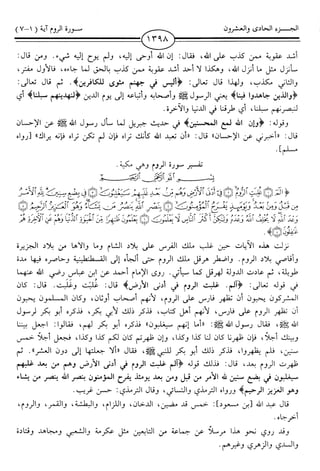 الجـــزء الحادى والعشرون
١٣٩٨
سـورة الروم آية (١-٧)
أشد عقوبة ممن كذب على الله، فقال: إن الله أوحى إليه، ولم يوح إليه شيء. ومن قال:
سأنزل مثل ما أنزل الله، وهكذا لا أحد أشد عقوبة ممن كذب بالحق لما جاءه، فالأول مفتر،
والثاني مكذب، ولهذا قال تعالى: ﴿أليس في جهنم مثوى للكافرين﴾. ثم قال تعالى:
﴿والذين جاهدوا فينا﴾ يعني الرسول ﷺ وأصحابه وأتباعه إلى يوم الدين ﴿لنهدينهم سبلنا﴾ أي
لنبصرنهم سبلنا، أي طرقنا في الدنيا والآخرة.
وقوله: ﴿وإن الله لمع المحسنين﴾ في حديث جبريل لما سأل رسول الله ﷺ عن الإحسان
قال: «أخبرني عن الإحسان» قال: «أن تعبد الله كأنك تراه فإن لم تكن تراه فإنه يراك» [رواه
مسلم].
تفسير سورة الروم وهي مكية.
نزلت هذه الآيات حين غلب ملك الفرس على بلاد الشام وما والاها من بلاد الجزيرة
وأقاصي بلاد الروم. واضطر هرقل ملك الروم حتى ألجأه إلى القسطنطينية وحاصره فيها مدة
طويلة، ثم عادت الدولة لهرقل كما سيأتي. روى الإمام أحمد عن ابن عباس رضي الله عنهما
في قوله تعالى: ﴿ألم. غلبت الروم في أدنى الأرض﴾ قال: غُلِبَت وغَلَبت. قال: كان
المشركون يحبون أن تظهر فارس على الروم، لأنهم أصحاب أوثان، وكان المسلمون يحبون
أن تظهر الروم على فارس، لأنهم أهل كتاب، فذكر ذلك لأبي بكر، فذكره أبو بكر لرسول
الله ﷺ، فقال رسول الله ﷺ: «أما إنهم سيغلبون» فذكره أبو بكر لهم، فقالوا: اجعل بيننا
وبينك أجلاً، فإن ظهرنا كان لنا كذا وكذا، وإن ظهرتم كان لكم كذا وكذا، فجعل أجلاً خمس
سنين، فلم يظهروا، فذكر ذلك أبو بكر للنبي ﷺ، فقال «ألا جعلتها إلى دون العشر»، ثم
ظهرت الروم بعد، قال: فذلك قوله ﴿ألم غلبت الروم في أدنى الأرض وهم من بعد غلبهم
سيغلبون في بضع سنين لله الأمر من قبل ومن بعد ويومئذ يفرح المؤمنون بنصر الله ينصر من يشاء
وهو العزيز الرحيم﴾ ورواه الترمذي والنسائي، وقال الترمذي: حسن غريب.
قال عبد الله [بن مسعود]: خمس قد مضين، الدخان، واللزام، والبطشة، والقمر، والروم،
أخرجاه.
وقد روي نحو هذا مرسلاً عن جماعة من التابعين مثل عكرمة والشعبي ومجاهد وقتادة
والسدي والزهري وغيرهم.